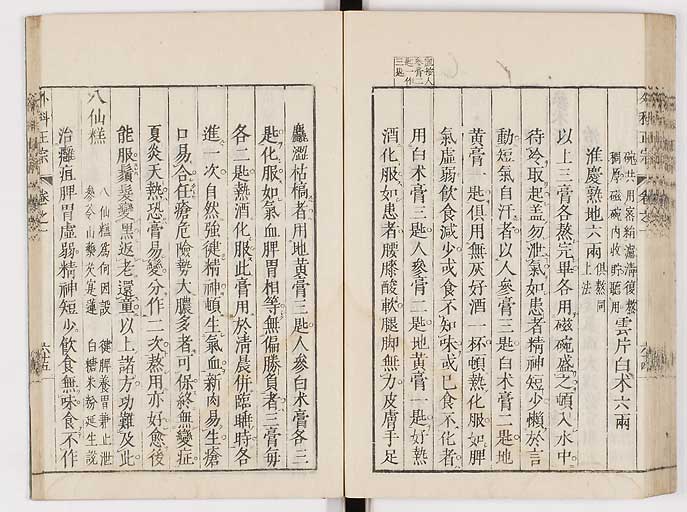 碗共用密絹濾清復熬
稠厚磁碗内收貯聽用
雲片白术六兩
淮慶熟地六兩
俱熬同
上法
以上三膏各熬完畢各用磁碗盛之頓入水中
待冷取起盖勿泄氣如患者精神短少懶於言
動短氣自汗者以人參膏三匙白术膏二匙地
黄膏一匙俱用無灰好酒一杯頓熱化服如脾
氣虛弱飲食減少或食不知味或已食不化者
用白术膏三匙人參膏二匙地黄膏一匙好熱
酒化服如患者腰膝酸軟腿脚無力皮膚手足
麤澀枯槁者用地黄膏三匙人參白术膏各三
匙化服如氣血脾胃相等無偏勝負者三膏每
各二匙熱酒化服此膏用於清晨併臨睡時各
進一次自然強健精神頓生氣血新肉易生瘡
口易合任瘡危險勢大膿多者可保終無變症
夏炎天熱恐膏易變分作二次熬用亦好愈後
能服鬚髮變黑返老還童以上諸方功難及此
八仙糕
八仙糕爲何因設
健脾養胃兼止泄
參苓山藥芡實蓮
白糖米粉延生說
治癰疽脾胃虛弱精神短少飲食無味食不作
外科正宗
卷之一
六十五